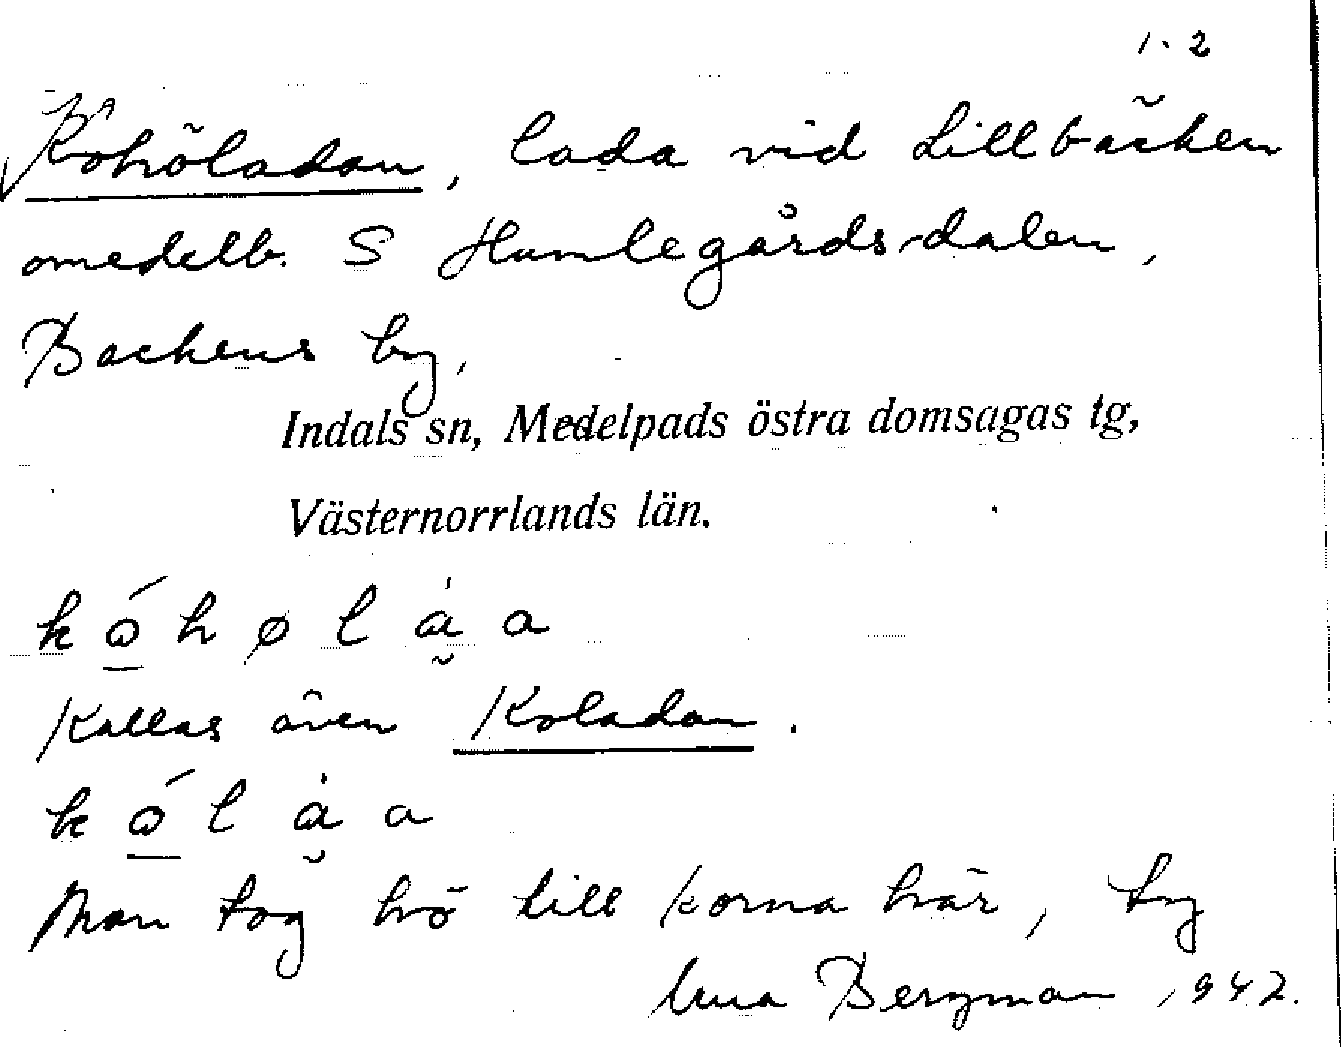 1. 2
Kohöladan, lada vid Lillbäcken
omedelb. S Humlegårds-dalen,
Backens by,
Indals sn, Medelpads östra domsagas tg,
Västernorrlands län.
k ó h ø l a a
Kallas även Koladan.
k ó l a a
Man tog hö till korna här, ty
Bergman 1942.